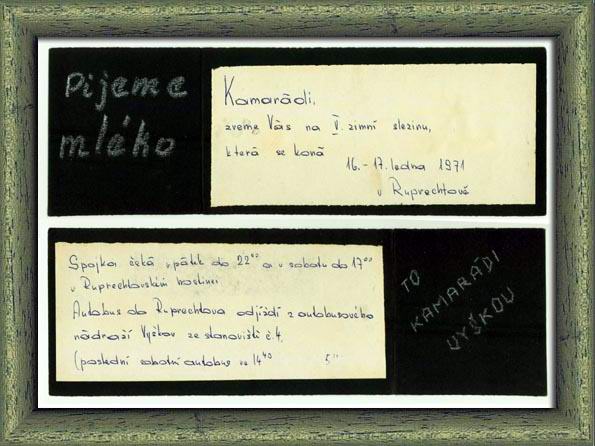 Pijeme
mléko
Kamarádi,
zveme Vás na V. zimní slezinu,
která se koná
16.-17. ledna 1971
v Ruprechtově
Spojka čeká v pátek do 22⁰⁰ a v sobotu do 17⁰⁰
v Ruprechtovském hostinci
Autobus do Ruprechtova odjíždí z autobusového
nádraží Vyškov ze stanoviště č.4.
(poslední sobotní autobus ve 14⁴⁰
TO
KAMARÁDI
VYŠKOV